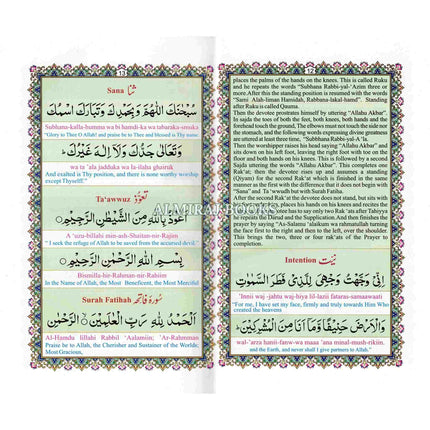 12
places the palms of the hands on the knees. This is called Ruku
and he repeats the words "Subhana Rabbi-yal-'Azim three or
more. After this the standing position is resumed with the words
"Sami Alah-liman Hamidah, Rabbana-lakal-hamd". Standing
after Ruku is called Quama.
Then the devotee prostrates himself by uttering "Allahu Akbar".
In sajda the toes of both the feet, both knees, both hands and the
forehead touch the ground, The elbows must not touch the side nor
the stomach, and the following words expressing divine greatness
are uttered at least three time, "Subhana Rabbi-yal-A 'la.
Then the worshipper raises his head saying "Allahu Akbar" and
sits down on his left foot, leaving the right foot with toe on the
floor and both hands on his knees. This is followed by a second
Sajda uttering the words "Allahu Akbar". This completes one
Rak'at; then the devotee rises up and assumes a standing
(Qiyam) for the second Rak'at which is finished in the same
manner as the first with the difference that it does not begin with
"Sana" and Ta 'wwudh but with Surah Fatiha.
After the second Rak'at the devotee does not stand, but sits with
his left foot in place, places his hands on his knees and recites the
Tashahhud. If he has to say only two Rak 'ats after Tahiyya
he repeats the Darud and the Supplication. And then finishes the
prayer by saying "As-Salamu 'alaikum wa rahmatullah turning
the face first to the right and then to the left, over the shoulder.
This brings the two, three or four rak'ats of the Prayer to
completion.
Intention نیت
اِنِّىْ وَجَّهْتُ وَجْهِىَ لِلَّذِىْ فَطَرَ السَّمٰوٰتِ
'Innii waj -jahtu waj-hiya lil-lazii fataras-samaawaati
"For me, I have set my face, firmly and truly towards Him Who
created the heavens
وَالْاَرْضَ حَنِيْفًا وَّمَا اَنَا مِنَ الْمُشْرِكِيْنَ
wal-'arza hanii-fanw-wa maaa 'ana minal-mush-rikiin.
and the Earth, and never shall I give partners to Allah."
13
Sana ثنا
سُبْحٰنَكَ اللّٰهُمَّ وَبِحَمْدِكَ وَتَبَارَكَ اسْمُكَ
Subhana-kalla-humma wa bi hamdi-ka wa tabaraka-smuka
"Glory to Thee O Allah! and praise be to Thee and blessed is Thy name
وَتَعَالٰى جَدُّكَ وَلَآ اِلٰهَ غَيْرُكَ
wa ta 'ala jadduka wa la-ilaha ghairuk
And exalted is Thy position, and there is none worthy worship
except Thyself."
Ta'awwuz تعوّذ
اَعُوْذُ بِاللّٰهِ مِنَ الشَّيْطٰنِ الرَّجِيْمِ
A 'uzu-billahi min-ash-Shaitan-nir-Rajim
" I seek the refuge of Allah to be saved from the accursed devil."
بِسْمِ اللّٰهِ الرَّحْمٰنِ الرَّحِيْمِ
Bismilla-hir-Rahman-nir-Rahiim
In the Name of Allah, the Most Beneficent, the Most Merciful
Surah Fatihah سورۃ فاتحہ
اَلْحَمْدُ لِلّٰهِ رَبِّ الْعٰلَمِيْنَ الرَّحْمٰنِ
Al-Hamdu lillahi Rabbil 'Aalamiin; 'Ar-Rahmaan
Praise be to Allah, the Cherisher and Sustainer of the Worlds;
Most Gracious,
ALMIRAJ BOOKS